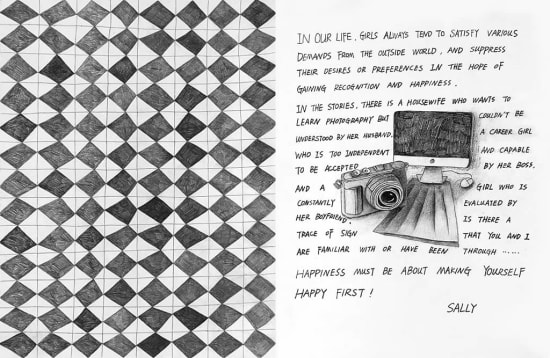 IN OUR LIFE, GIRLS ALWAYS TEND TO SATISFY VARIOUS
DEMANDS FROM THE OUTSIDE WORLD, AND SUPPRESS
THEIR DESIRES OR PREFERENCES IN THE HOPE OF
GAINING RECOGNITION AND HAPPINESS.
IN THE STORIES, THERE IS A HOUSEWIFE WHO WANTS TO
LEARN PHOTOGRAPHY BUT COULDN'T BE
UNDERSTOOD BY HER HUSBAND. A CAREER GIRL
WHO IS TOO INDEPENDENT AND CAPABLE
TO BE ACCEPTED BY HER BOSS.
AND A GIRL WHO IS
CONSTANTLY EVALUATED BY
HER BOYFRIEND. IS THERE A
TRACE OF SIGN THAT YOU AND I
ARE FAMILIAR WITH OR HAVE BEEN THROUGH ......
HAPPINESS MUST BE ABOUT MAKING YOURSELF
HAPPY FIRST!
SALLY